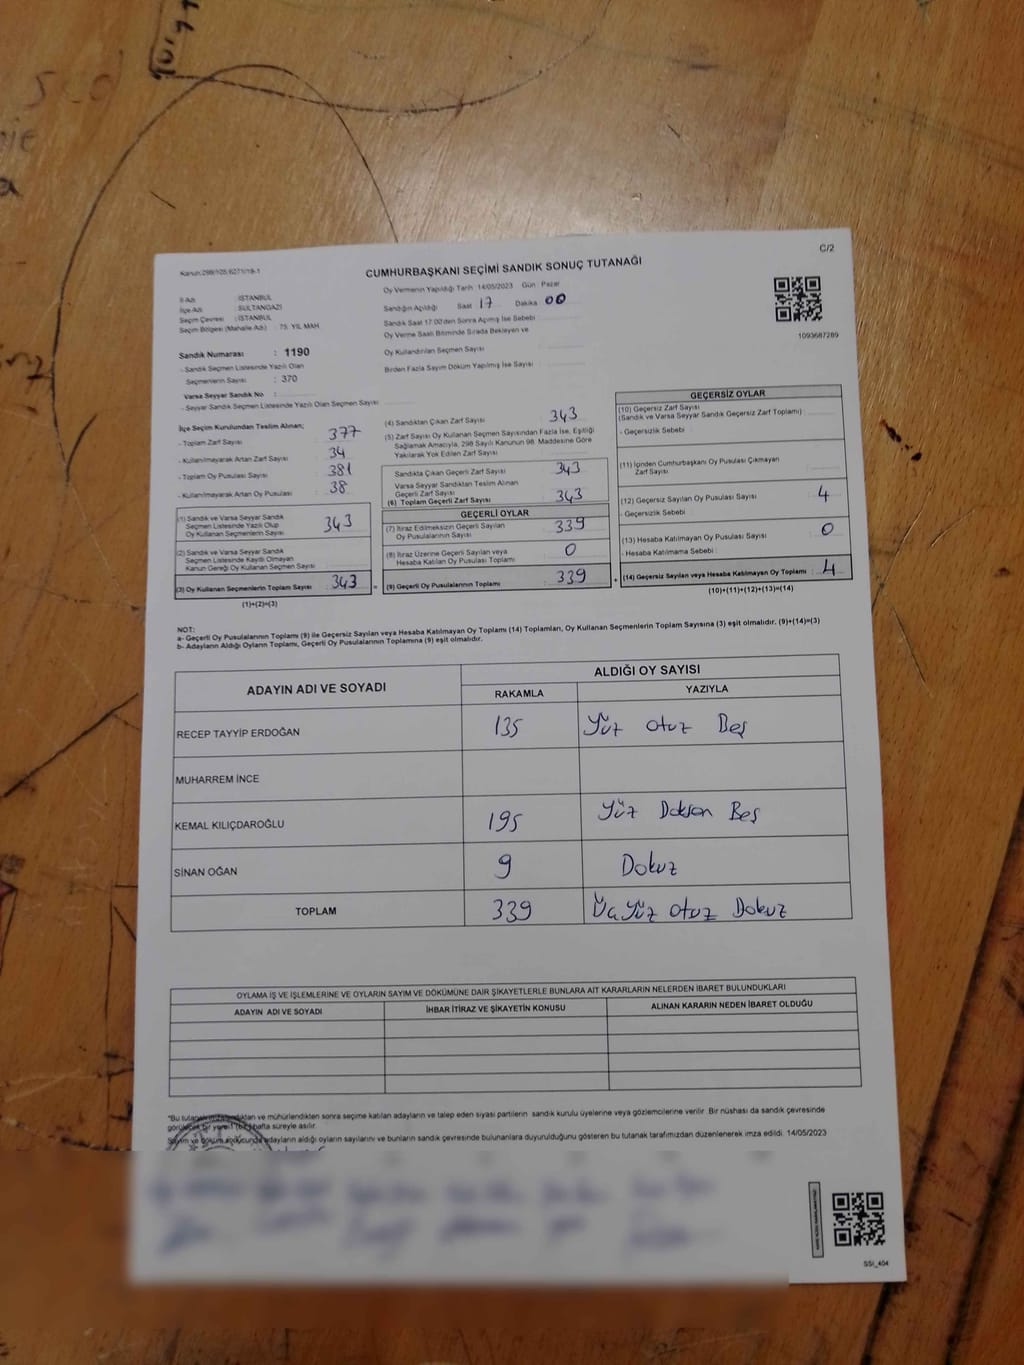 C/2
Kanun:298/105,6271/18-1
CUMHURBAŞKANI SEÇİMİ SANDIK SONUÇ TUTANAĞI
İl Adı : İSTANBUL
İlçe Adı : SULTANGAZİ
Seçim Çevresi : İSTANBUL
Seçim Bölgesi (Mahalle Adı) : 75. YIL MAH.
Oy Vermenin Yapıldığı Tarih 14/05/2023 Gün Pazar
Sandığın Açıldığı Saat 17 Dakika 00
Sandık Saat 17:00'den Sonra Açılmış İse Sebebi
Oy Verme Saati Bitiminde Sırada Bekleyen ve
Oy Kullandırılan Seçmen Sayısı
Birden Fazla Sayım Döküm Yapılmış İse Sayısı
1093687289
Sandık Numarası : 1190
- Sandık Seçmen Listesinde Yazılı Olan
Seçmenlerin Sayısı : 370
Varsa Seyyar Sandık No :
- Seyyar Sandık Seçmen Listesinde Yazılı Olan Seçmen Sayısı
İlçe Seçim Kurulundan Teslim Alınan;
- Toplam Zarf Sayısı 377
- Kullanılmayarak Artan Zarf Sayısı 34
- Toplam Oy Pusulası Sayısı 381
- Kullanılmayarak Artan Oy Pusulası 38
(1) Sandık ve Varsa Seyyar Sandık
Seçmen Listesinde Yazılı Olup
Oy Kullanan Seçmenlerin Sayısı 343
(2) Sandık ve Varsa Seyyar Sandık
Seçmen Listesinde Kayıtlı Olmayan
Kanun Gereği Oy Kullanan Seçmen Sayısı
(3) Oy Kullanan Seçmenlerin Toplam Sayısı 343 =
(1)+(2)=(3)
(4) Sandıktan Çıkan Zarf Sayısı 343
(5) Zarf Sayısı Oy Kullanan Seçmen Sayısından Fazla İse, Eşitliği
Sağlamak Amacıyla, 298 Sayılı Kanunun 98. Maddesine Göre
Yakılarak Yok Edilen Zarf Sayısı
Sandıkta Çıkan Geçerli Zarf Sayısı 343
Varsa Seyyar Sandıktan Teslim Alınan
Geçerli Zarf Sayısı
(6) Toplam Geçerli Zarf Sayısı 343
GEÇERLİ OYLAR
(7) İtiraz Edilmeksizin Geçerli Sayılan
Oy Pusulalarının Sayısı 339
(8) İtiraz Üzerine Geçerli Sayılan veya
Hesaba Katılan Oy Pusulası Toplamı 0
(9) Geçerli Oy Pusulalarının Toplamı 339 +
GEÇERSİZ OYLAR
(10) Geçersiz Zarf Sayısı
(Sandık ve Varsa Seyyar Sandık Geçersiz Zarf Toplamı)
- Geçersizlik Sebebi :
(11) İçinden Cumhurbaşkanı Oy Pusulası Çıkmayan
Zarf Sayısı
(12) Geçersiz Sayılan Oy Pusulası Sayısı 4
- Geçersizlik Sebebi :
(13) Hesaba Katılmayan Oy Pusulası Sayısı 0
- Hesaba Katılmama Sebebi :
(14) Geçersiz Sayılan veya Hesaba Katılmayan Oy Toplamı 4
(10)+(11)+(12)+(13)=(14)
NOT:
a- Geçerli Oy Pusulalarının Toplamı (9) ile Geçersiz Sayılan veya Hesaba Katılmayan Oy Toplamı (14) Toplamları, Oy Kullanan Seçmenlerin Toplam Sayısına (3) eşit olmalıdır. (9)+(14)=(3)
b- Adayların Aldığı Oyların Toplamı, Geçerli Oy Pusulalarının Toplamına (9) eşit olmalıdır.
ADAYIN ADI VE SOYADI
ALDIĞI OY SAYISI
RAKAMLA YAZIYLA
RECEP TAYYİP ERDOĞAN 135 Yüz otuz Beş
MUHARREM İNCE
KEMAL KILIÇDAROĞLU 195 Yüz Doksan Beş
SİNAN OĞAN 9 Dokuz
TOPLAM 339 Üç Yüz otuz Dokuz
OYLAMA İŞ VE İŞLEMLERİNE VE OYLARIN SAYIM VE DÖKÜMÜNE DAİR ŞİKAYETLERLE BUNLARA AİT KARARLARIN NELERDEN İBARET BULUNDUKLARI
ADAYIN ADI VE SOYADI İHBAR İTİRAZ VE ŞİKAYETİN KONUSU ALINAN KARARIN NEDEN İBARET OLDUĞU
*Bu tutanak imzalandıktan ve mühürlendikten sonra seçime katılan adayların ve talep eden siyasi partilerin sandık kurulu üyelerine veya gözlemcilerine verilir. Bir nüshası da sandık çevresinde
görülecek bir yere 1 (bir) hafta süreyle asılır.
Sayım ve döküm sonucunda adayların aldığı oyların sayılarını ve bunların sandık çevresinde bulunanlara duyurulduğunu gösteren bu tutanak tarafımızdan düzenlenerek imza edildi. 14/05/2023
SSI_404